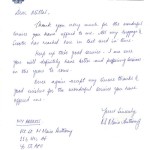 Dear Mittal,
Thank you very much for the wonderful
service you have offered to me. All my luggage &
Crates has reached here in tact and in time.
Keep up this good service. I am sure
you will definitely have better and prospering business
in the years to come.
Once again accept my sincere thanks &
good wishes for the wonderful service you have
offered to me.
Yours Sincerely
MY ADDRESS